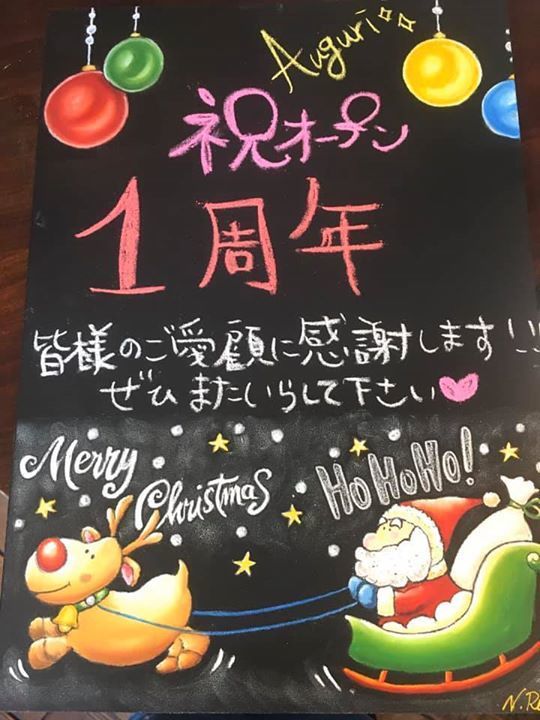 Auguri
祝オープン
1周年
皆様のご愛顧に感謝します!!
ぜひまたいらして下さい
Merry
Christmas
HoHoHo!